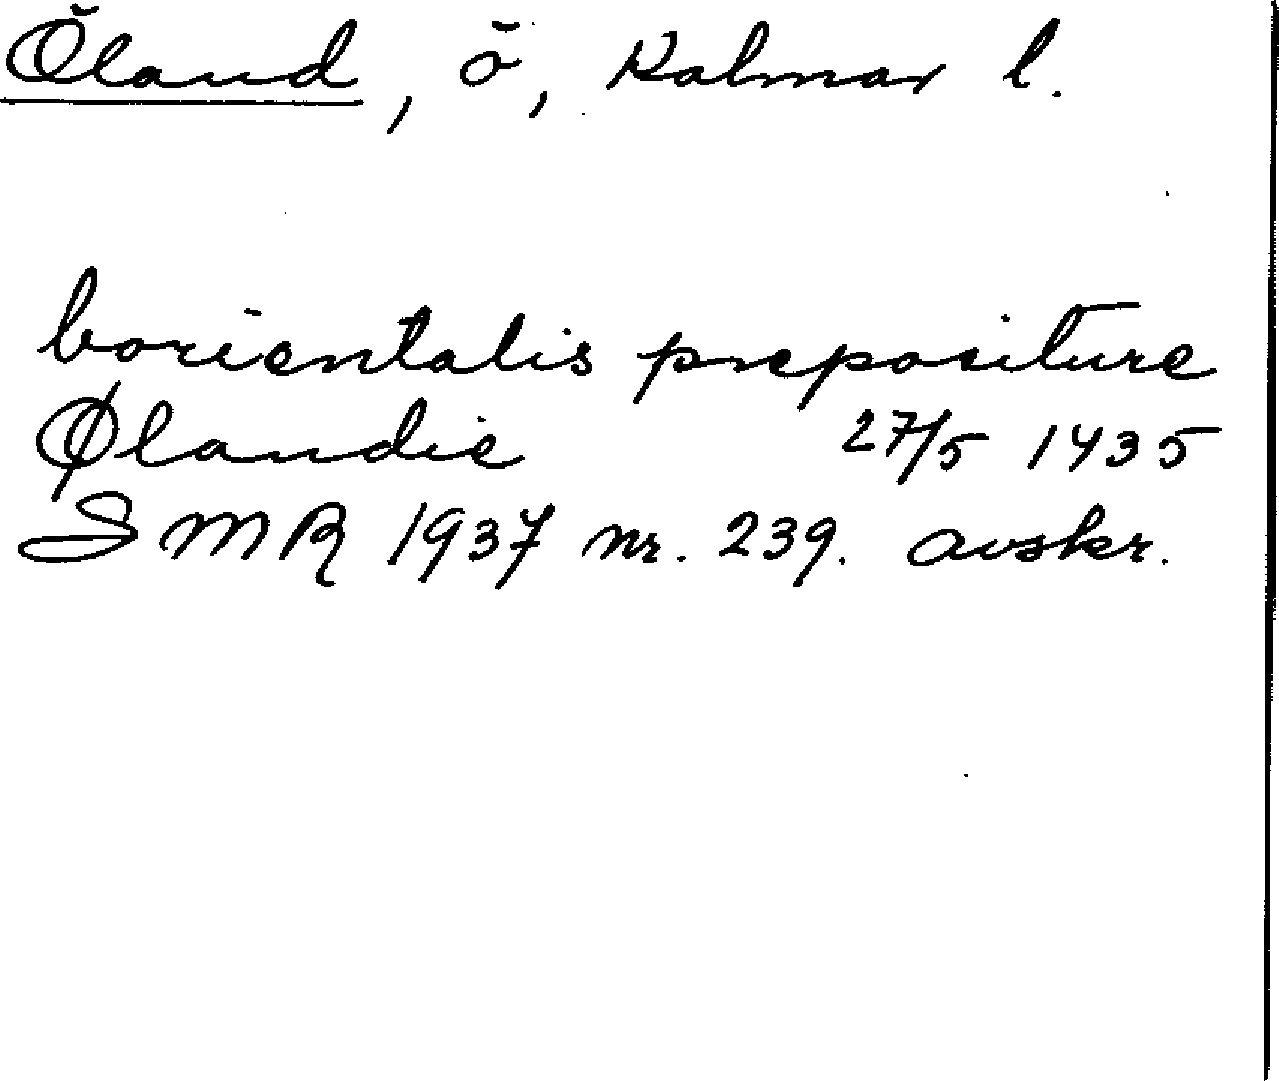 Öland, ö, Kalmar l.
borientalis prepositure
Ølandie 27/5 1435
SMR 1937 nr. 239. avskr.